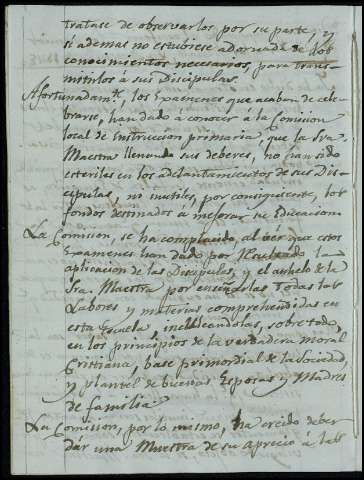 tratase de observarlos por su parte, y
si ademas no estubiese adornada de los
conocimientos necesarios, para trans-
mitirlos á sus Discipulas.
Afortunadamte, los Examenes que acaban de cele-
brarse, han dado a conocer a la Comision
local de Instruccion primaria, que la Sra.
Maestra llenando sus deberes, no han sido
esteriles en los Adelantamientos de sus Dis-
cipulas, no inutiles, por consiguiente, los
fondos destinados a mejorar su Educacion.
La Comision, se ha complacido al bér que estos
Examenes han dado por Resultado la
aplicacion de las Discipulas, y el anhelo de la
Sra. Maestra por enseñarlas todas las
Labores y materias comprehendidas en
esta Escuela, inculcandolas, sobre todo,
en los principios de la verdadera moral
Cristiana, base primordial de la Sociedad,
y plantel de buenas Esposas y Madres
de familia
La Comision, por lo mismo, ha creido deber
dár una Muestra de su aprecio á las